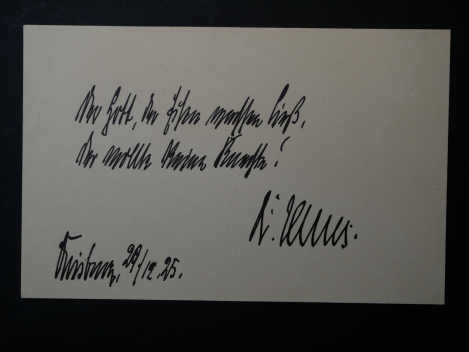 Der Gott, der Eisen wachsen ließ,
Der wollte keine Knechte!
Duisburg, 29/12.25.